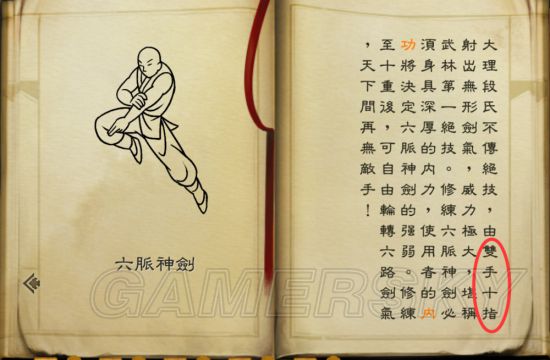 六脈神劍
大理段氏不傳絕技，由雙手十指
射出無形劍氣，威力極大，堪稱
武林第一絕技。修練六脈神劍必
須身具深厚的内力，使用者的内
功將決定六脈神劍的强弱。修練
至十重後，可自由輪轉六路劍氣
，天下間再無敵手！
GAMERSKY